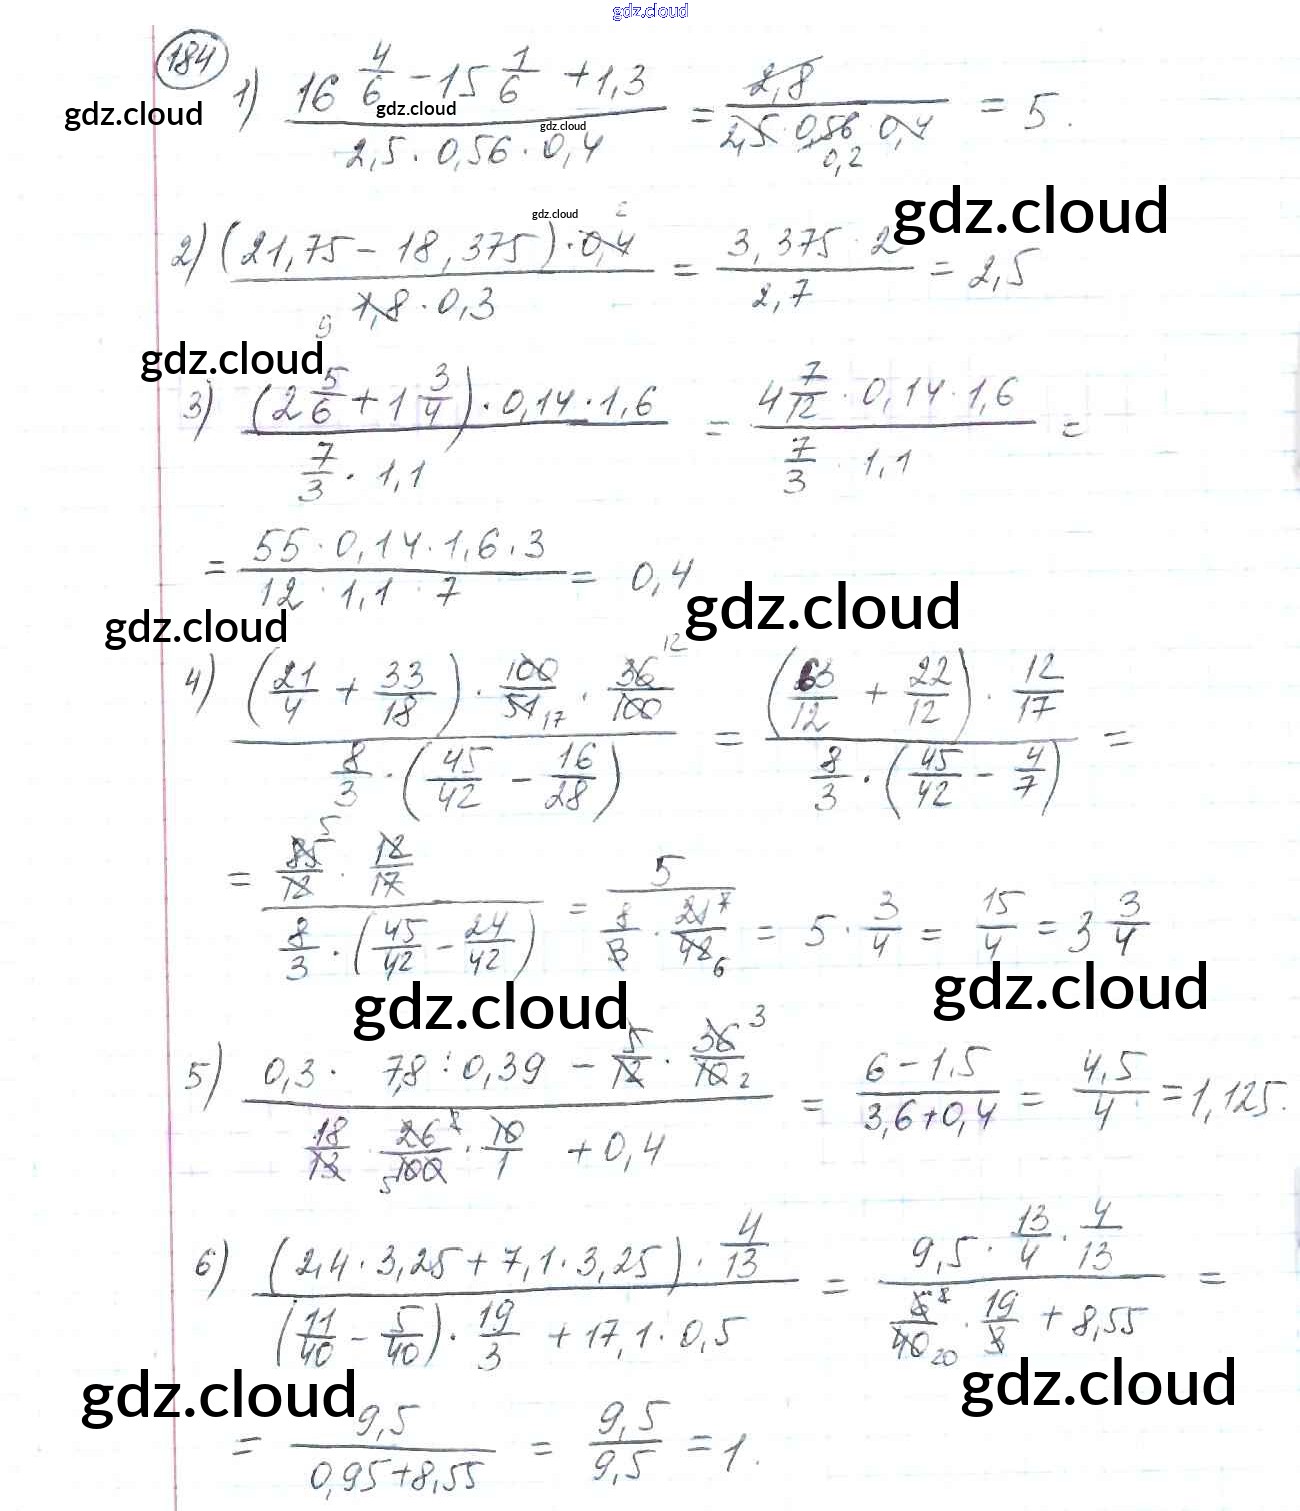 gdz.cloud
184
gdz.cloud
1) (16 4/6 − 15 1/6 + 1,3)/(2,5 · 0,56 · 0,4) = 2,8/(2,5 · 0,56 · 0,4) = 5.
gdz.cloud
gdz.cloud
0,2
gdz.cloud
gdz.cloud
2) ((21,75 − 18,375) · 0,4)/(1,8 · 0,3) = (3,375 · 2)/2,7 = 2,5
9
gdz.cloud
3) ((2 5/6 + 1 3/4) · 0,14 · 1,6)/(7/3 · 1,1) = (4 7/12 · 0,14 · 1,6)/(7/3 · 1,1) =
= (55 · 0,14 · 1,6 · 3)/(12 · 1,1 · 7) = 0,4
gdz.cloud
gdz.cloud
12
4) ((21/4 + 33/18) · 100/51 · 36/100)/(8/3 · (45/42 − 16/28)) = ((63/12 + 22/12) · 12/17)/(8/3 · (45/42 − 4/7)) =
17
5
= (85/12 · 12/17)/(8/3 · (45/42 − 24/42)) = 5/(8/3 · 21/42) = 5 · 3/4 = 15/4 = 3 3/4
gdz.cloud
gdz.cloud
3
5) (0,3 · 7,8 : 0,39 − 5/12 · 36/10)/(18/13 · 26/100 · 10/1 + 0,4) = (6 − 1,5)/(3,6 + 0,4) = 4,5/4 = 1,125.
2
5
6) ((2,4 · 3,25 + 7,1 · 3,25) · 4/13)/((11/40 − 5/40) · 19/3 + 17,1 · 0,5) = (9,5 · 13/4 · 4/13)/(6/40 · 19/3 + 8,55) =
20
gdz.cloud
gdz.cloud
= 9,5/(0,95 + 8,55) = 9,5/9,5 = 1.